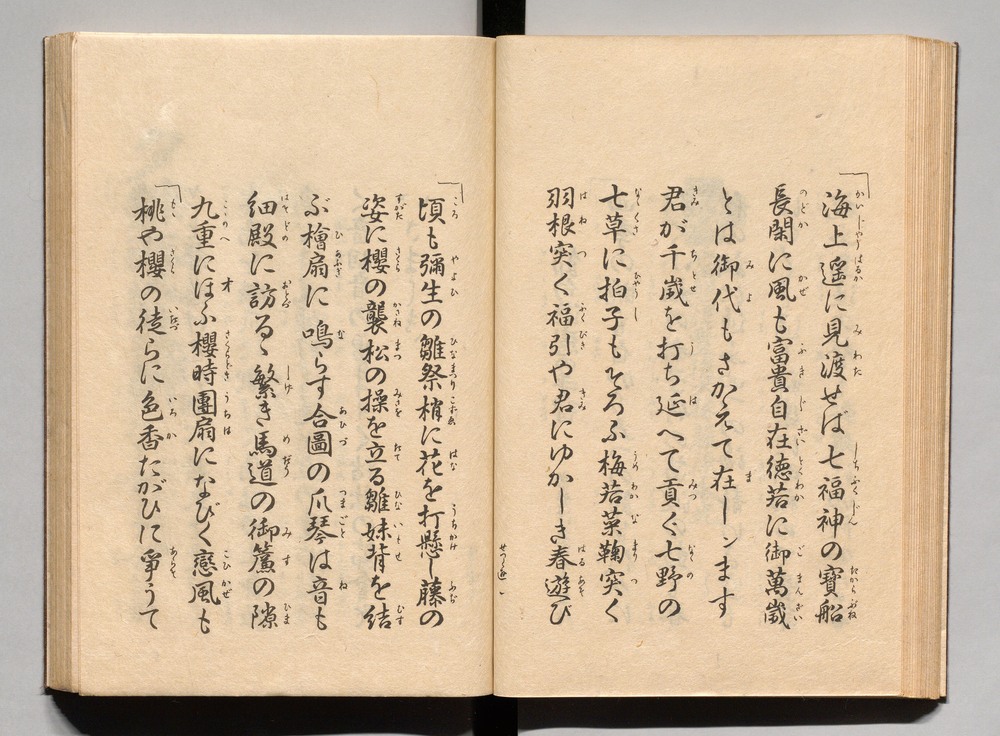 海上遥に見渡せば七福神の寳船
長閑に風も富貴自在徳若に御萬歳
とは御代もさかえて在しンます
君が千歳を打ち延へて貢ぐ七野の
七草に拍子もそろふ梅若菜鞠突く
羽根突く福引や君にゆかしき春遊び
頃も彌生の雛祭梢に花を打懸し藤の
姿に櫻の襲松の操を立る雛妹背を結
ぶ檜扇に鳴らす合圖の爪琴は音も
細殿に訪るゝ繁き馬道の御簾の隙
九重にほふ櫻時團扇になびく戀風も
桃や櫻の徒らに色香たがひに爭うて